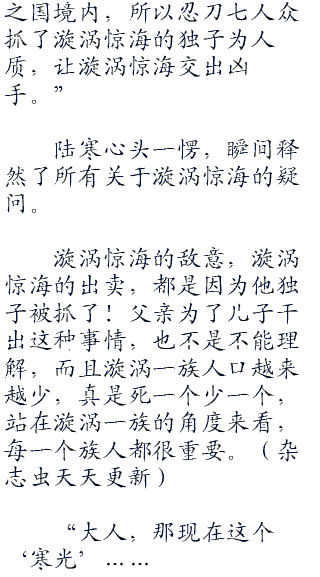 之国境内，所以忍刀七人众
抓了漩涡惊海的独子为人
质，让漩涡惊海交出凶
手。”
陆寒心头一愣，瞬间释
然了所有关于漩涡惊海的疑
问。
漩涡惊海的敌意，漩涡
惊海的出卖，都是因为他独
子被抓了！父亲为了儿子干
出这种事情，也不是不能理
解，而且漩涡一族人口越来
越少，真是死一个少一个，
站在漩涡一族的角度来看，
每一个族人都很重要。（杂
志虫天天更新）
“大人，那现在这个
‘寒光’……